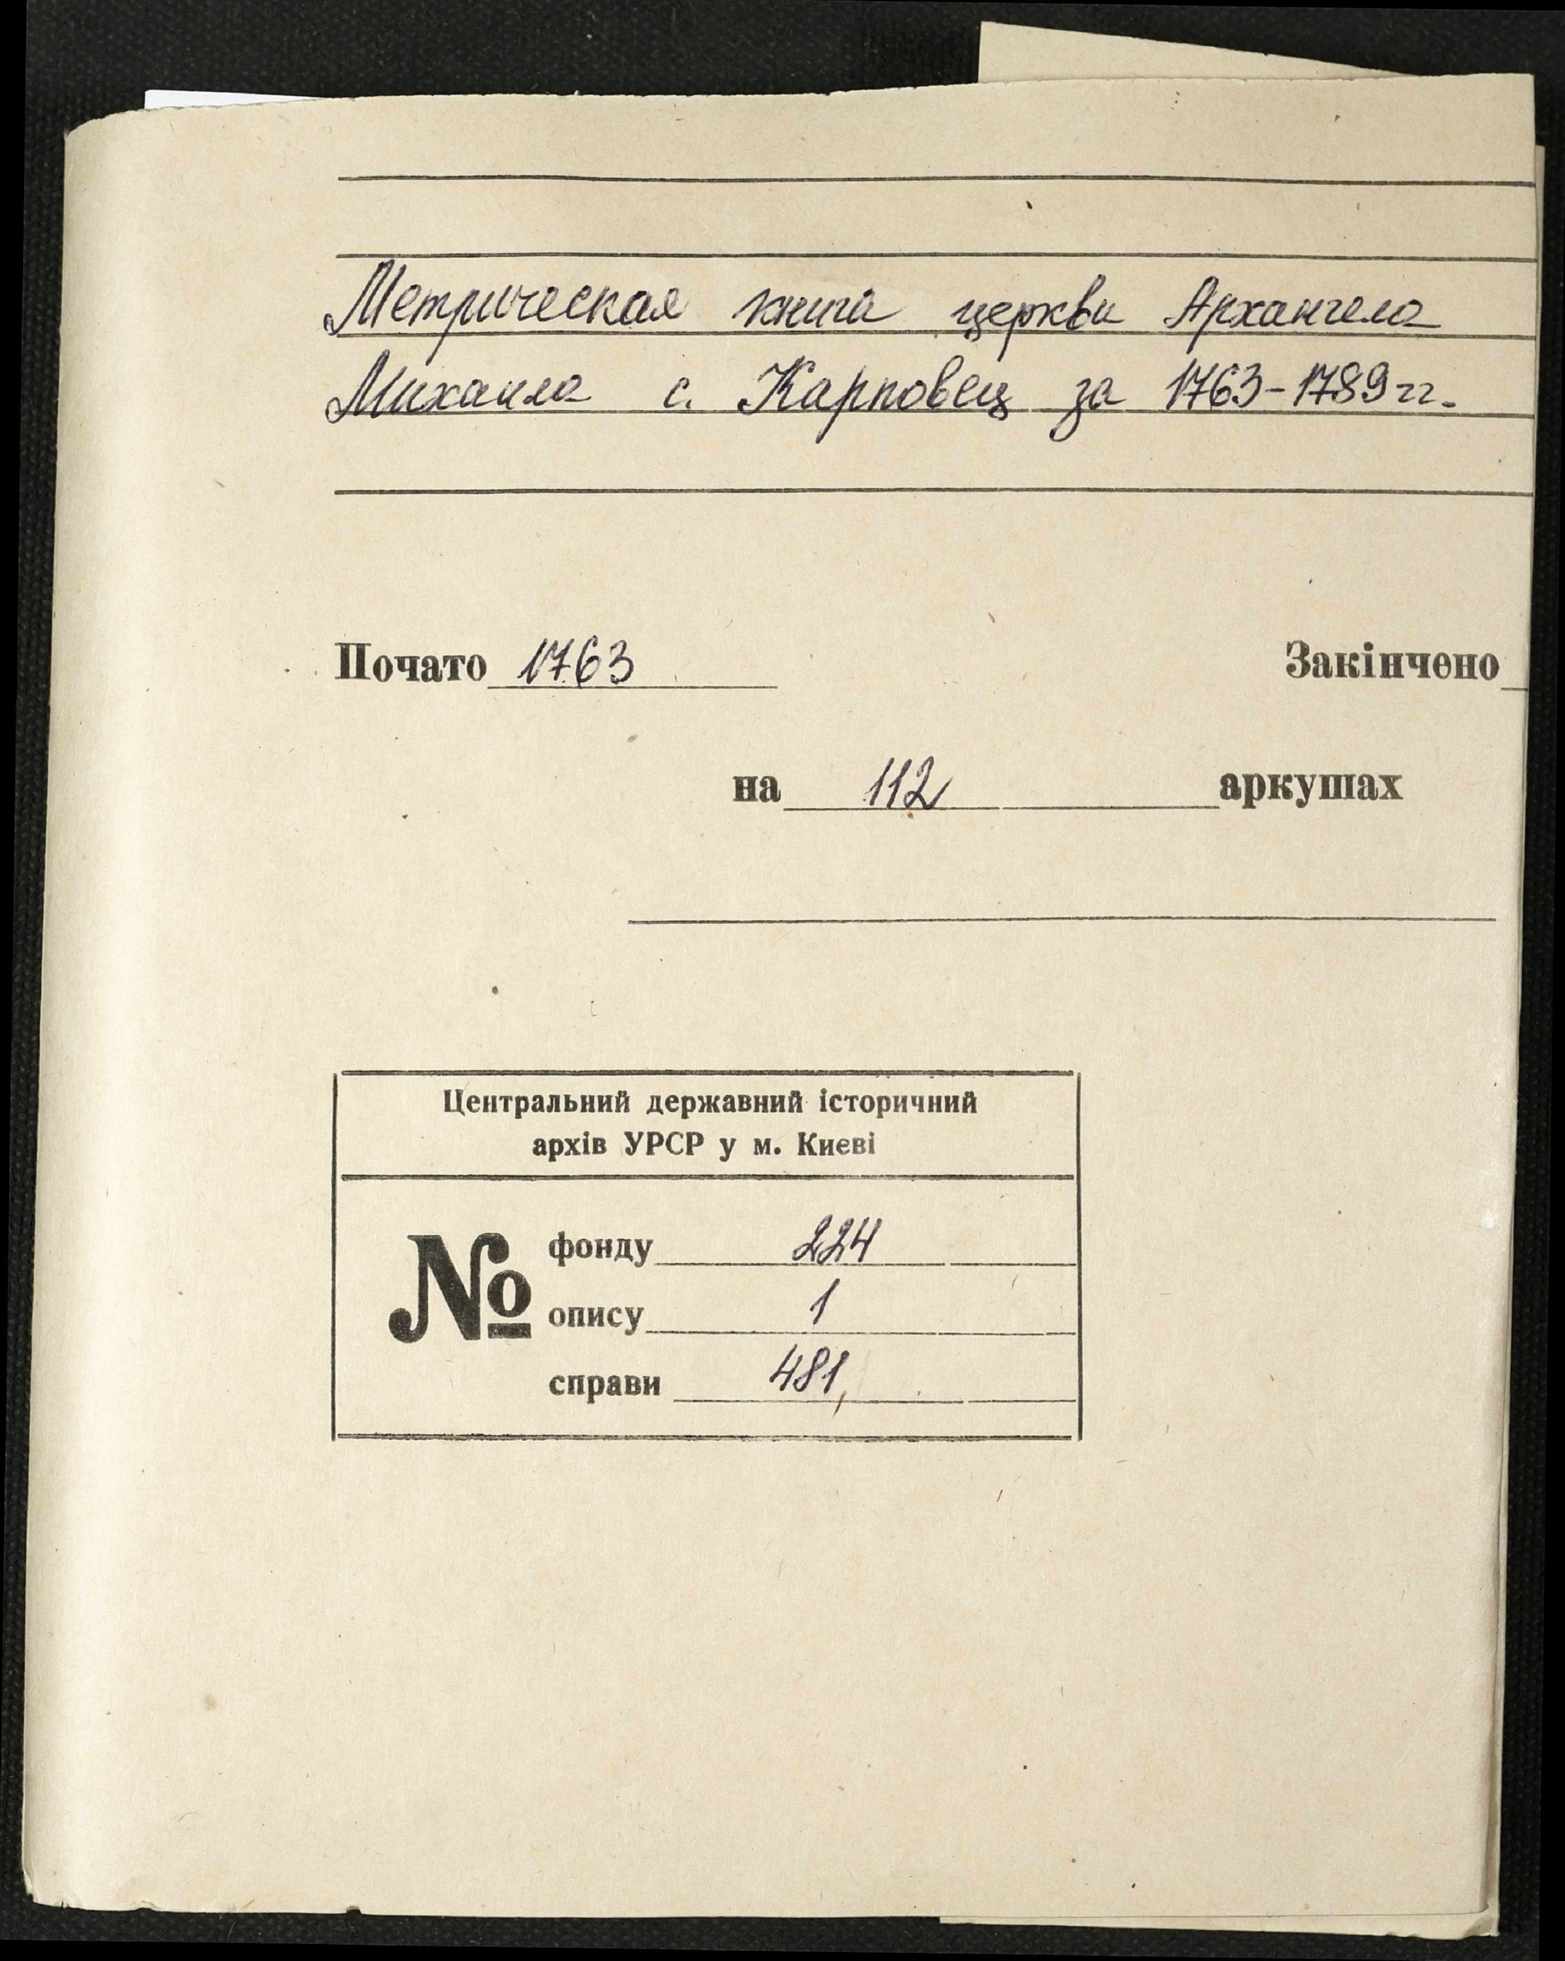 Метрическая книга церкви Архангела
Михаила с. Карповец за 1763-1789 гг.
Почато 1763 Закінчено
на 112 аркушах
Центральний державний історичний
архів УРСР у м. Києві
№ фонду 224
опису 1
справи 481,